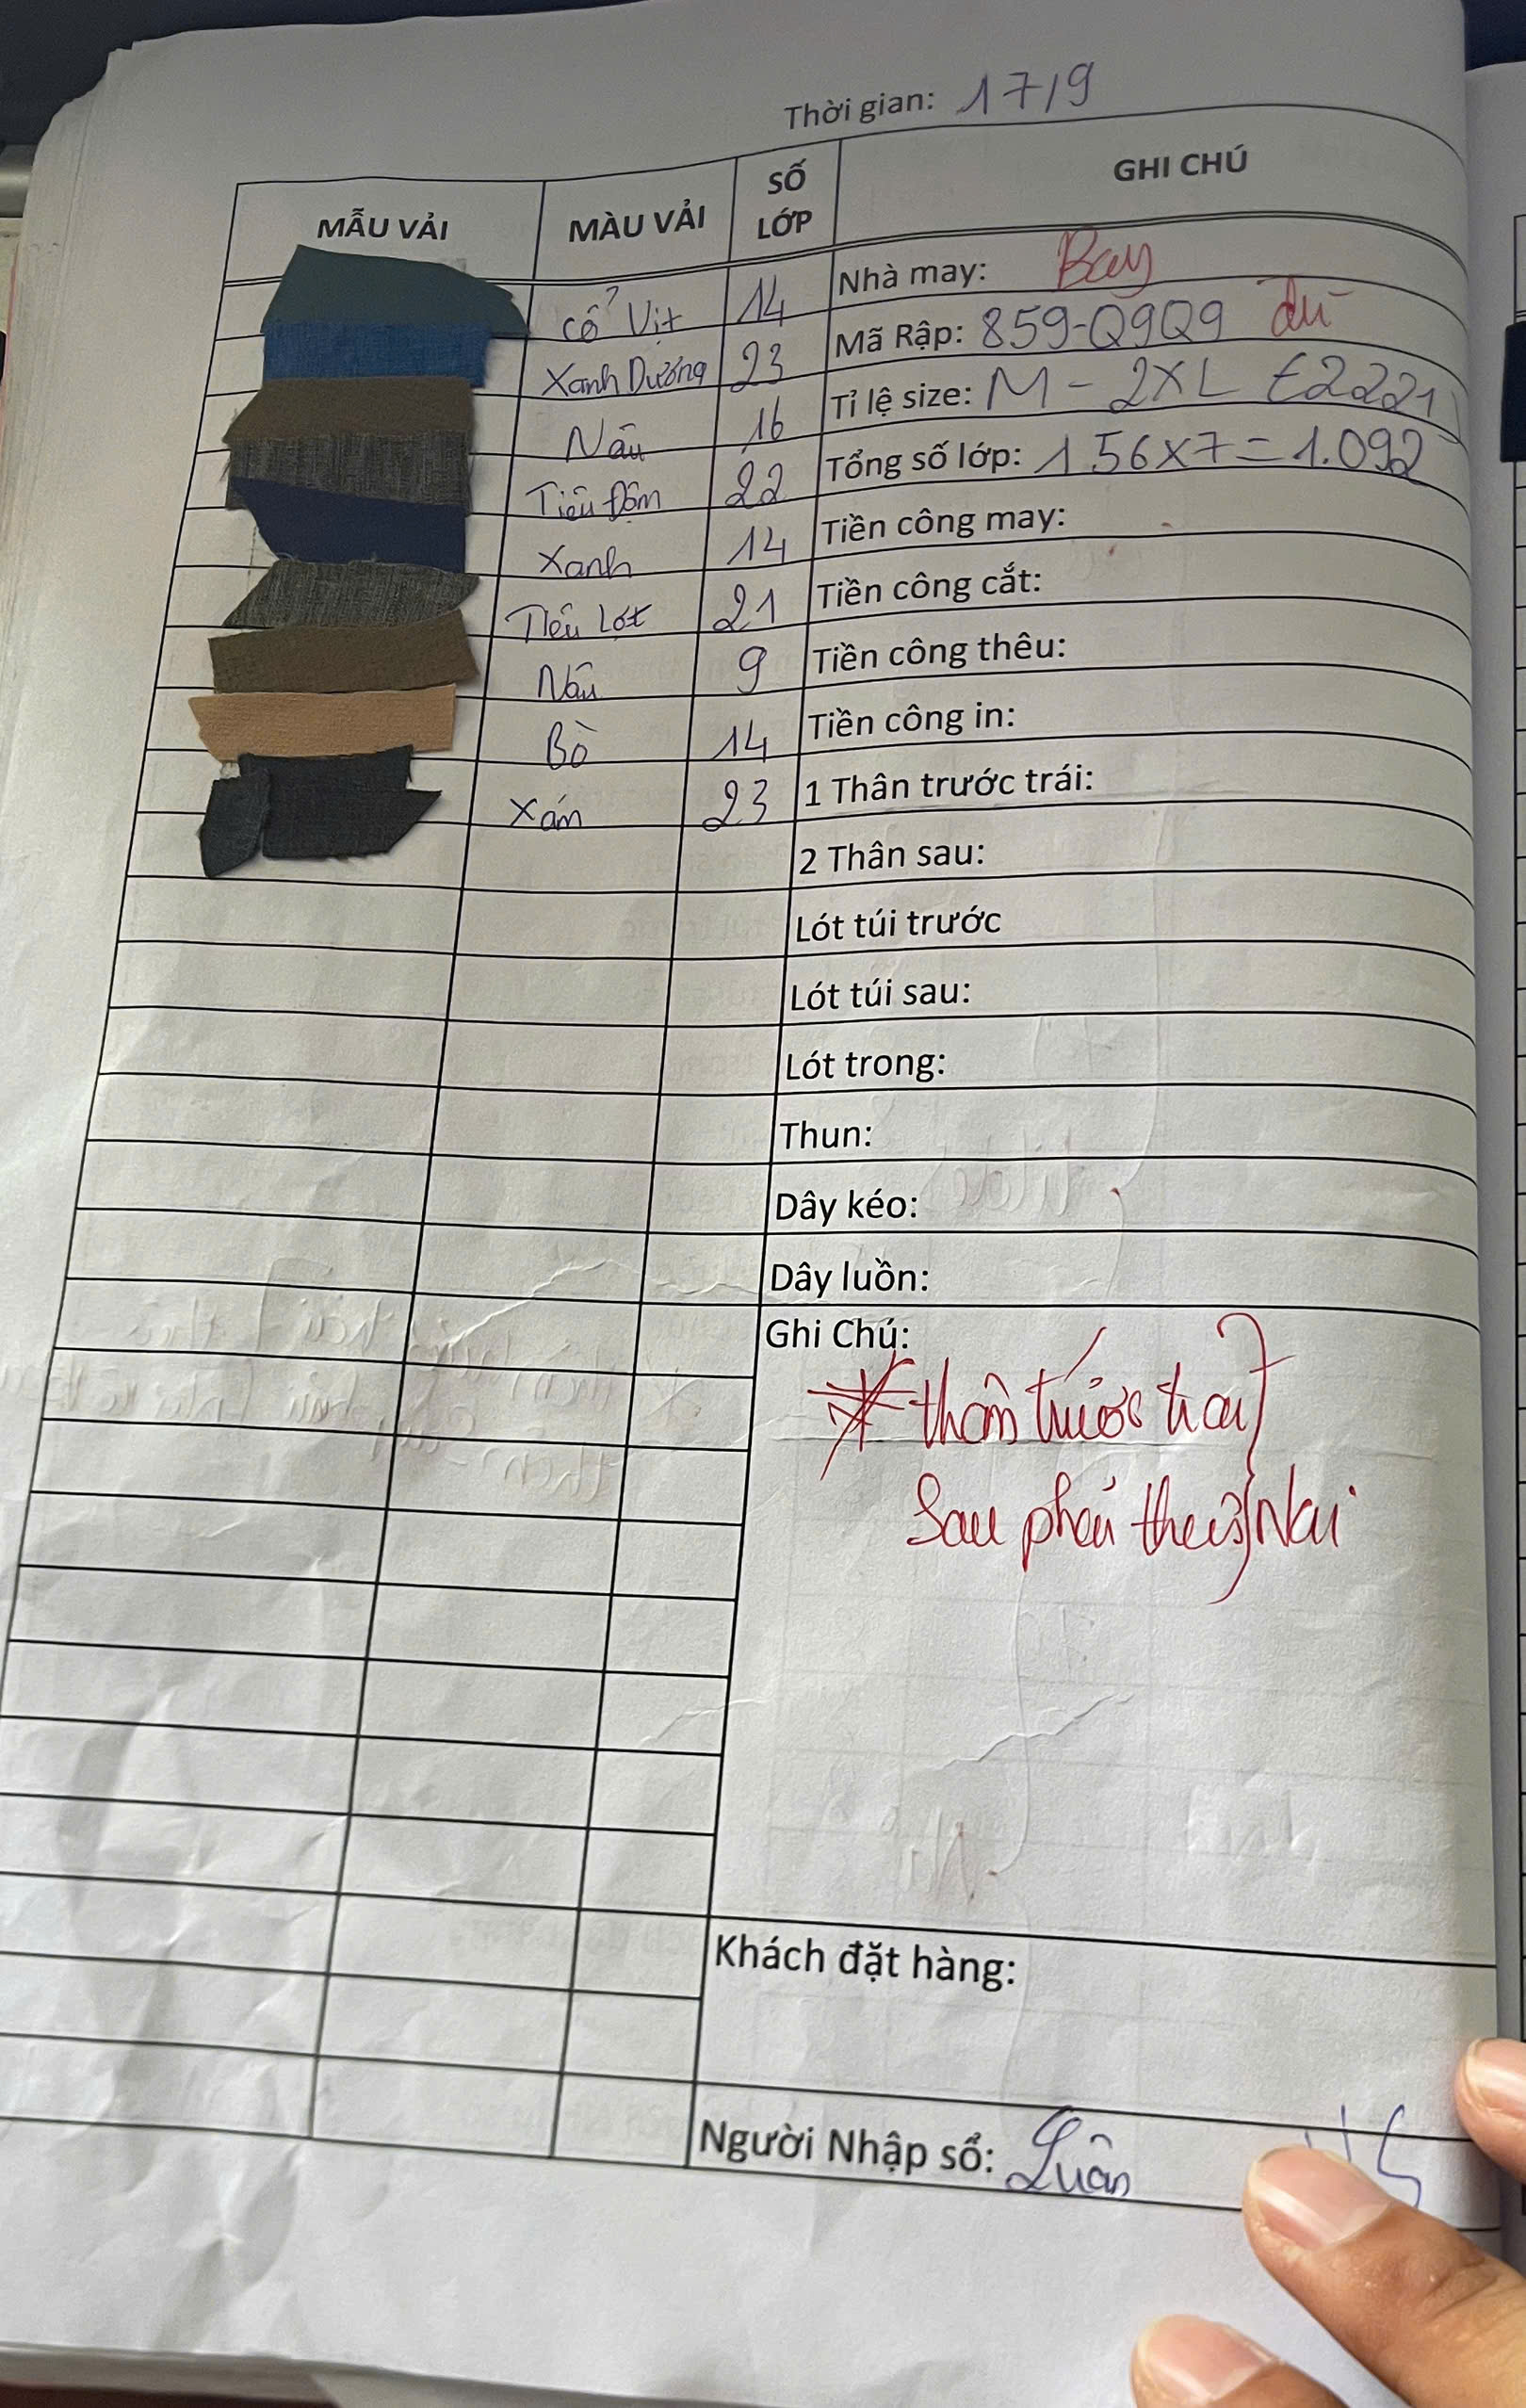 Thời gian: 17/9
MẪU VẢI MÀU VẢI SỐ LỚP GHI CHÚ
Cổ Vịt 14 Nhà may: Bay
Xanh Dương 23 Mã Rập: 859-Q9Q9 đủ
Nâu 16 Tỉ lệ size: M - 2XL (2221)
Tiêu Đậm 22 Tổng số lớp: 156x7=1.092
Xanh 14 Tiền công may:
Tiêu Lợt 21 Tiền công cắt:
Nâu 9 Tiền công thêu:
Bò 14 Tiền công in:
Xám 23 1 Thân trước trái:
2 Thân sau:
Lót túi trước
Lót túi sau:
Lót trong:
Thun:
Dây kéo:
Dây luồn:
Ghi Chú:
* thân trước trái
Sau phải thêu Nai
Khách đặt hàng:
Người Nhập sổ: Luân